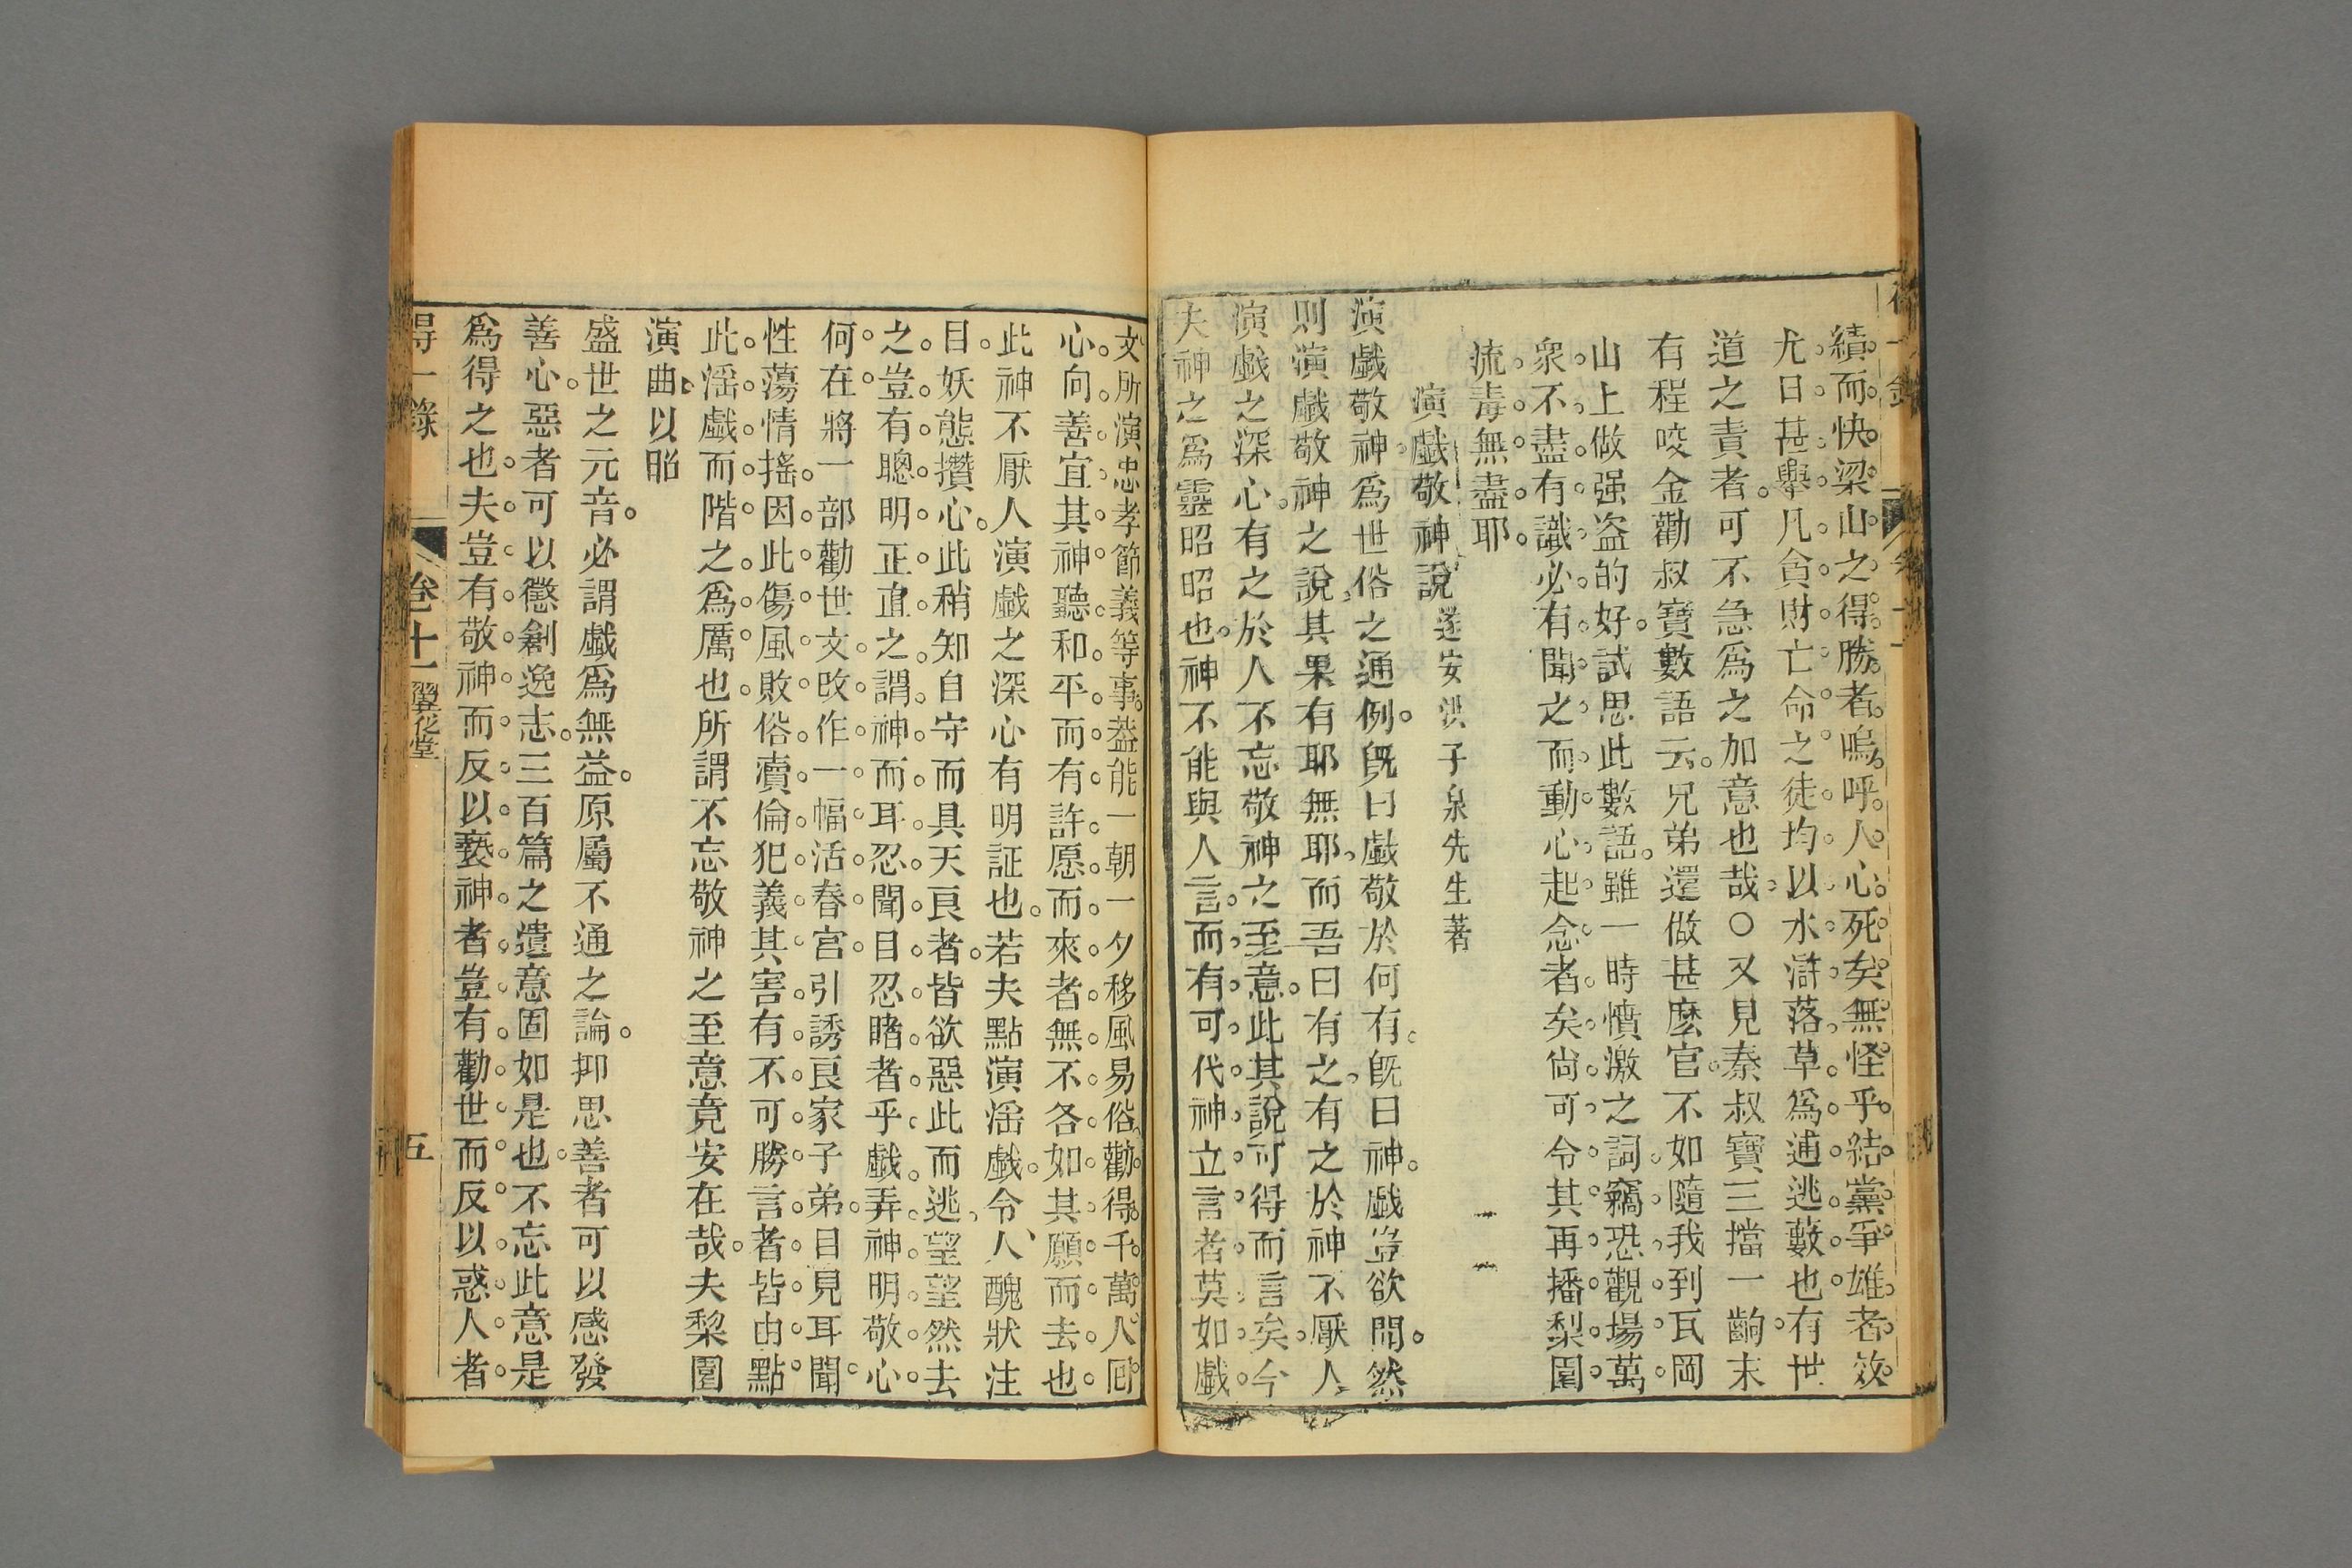 績而快梁山之得勝者嗚呼人心死矣無怪乎結黨爭雄者效
尤日甚舉凡貪財亡命之徒均以水滸落草爲逋逃藪也有世
道之責者可不急爲之加意也哉○又見秦叔寶三擋一齣末
有程咬金勸叔寶數語云兄弟還做甚麽官不如隨我到瓦岡
山上做强盗的好試思此數語雖一時憤激之詞竊恐觀場萬
衆不盡有識必有聞之而動心起念者矣尙可令其再播梨園
流毒無盡耶
演戯敬神說 遂安洪子泉先生著
演戯敬神爲世俗之通例旣曰戯敬於何有旣曰神戯豈欲閱然
則演戯敬神之說其果有耶無耶而吾曰有之有之於神不厭人
演戯之深心有之於人不忘敬神之至意此其說可得而言矣今
夫神之爲靈昭昭也神不能與人言而有可代神立言者莫如戯
文所演忠孝節義等事葢能一朝一夕移風易俗勸得千萬人囘
心向善宜其神聽和平而有許愿而來者無不各如其願而去也
此神不厭人演戯之深心有明証也若夫點演滛戯令人醜狀注
目妖態攢心此稍知自守而具天良者皆欲惡此而逃望望然去
之豈有聰明正直之謂神而耳忍聞目忍睹者乎戯弄神明敬心
何在將一部勸世文改作一幅活春宮引誘良家子弟目見耳聞
性蕩情搖因此傷風敗俗瀆倫犯義其害有不可勝言者皆由點
此滛戯而階之爲厲也所謂不忘敬神之至意竟安在哉夫梨園
演曲以昭
盛世之元音必謂戯爲無益原屬不通之論抑思善者可以感發
善心惡者可以懲創逸志三百篇之遺意固如是也不忘此意是
爲得之也夫豈有敬神而反以褻神者豈有勸世而反以惑人者
得一錄 卷十一 翼化堂 五